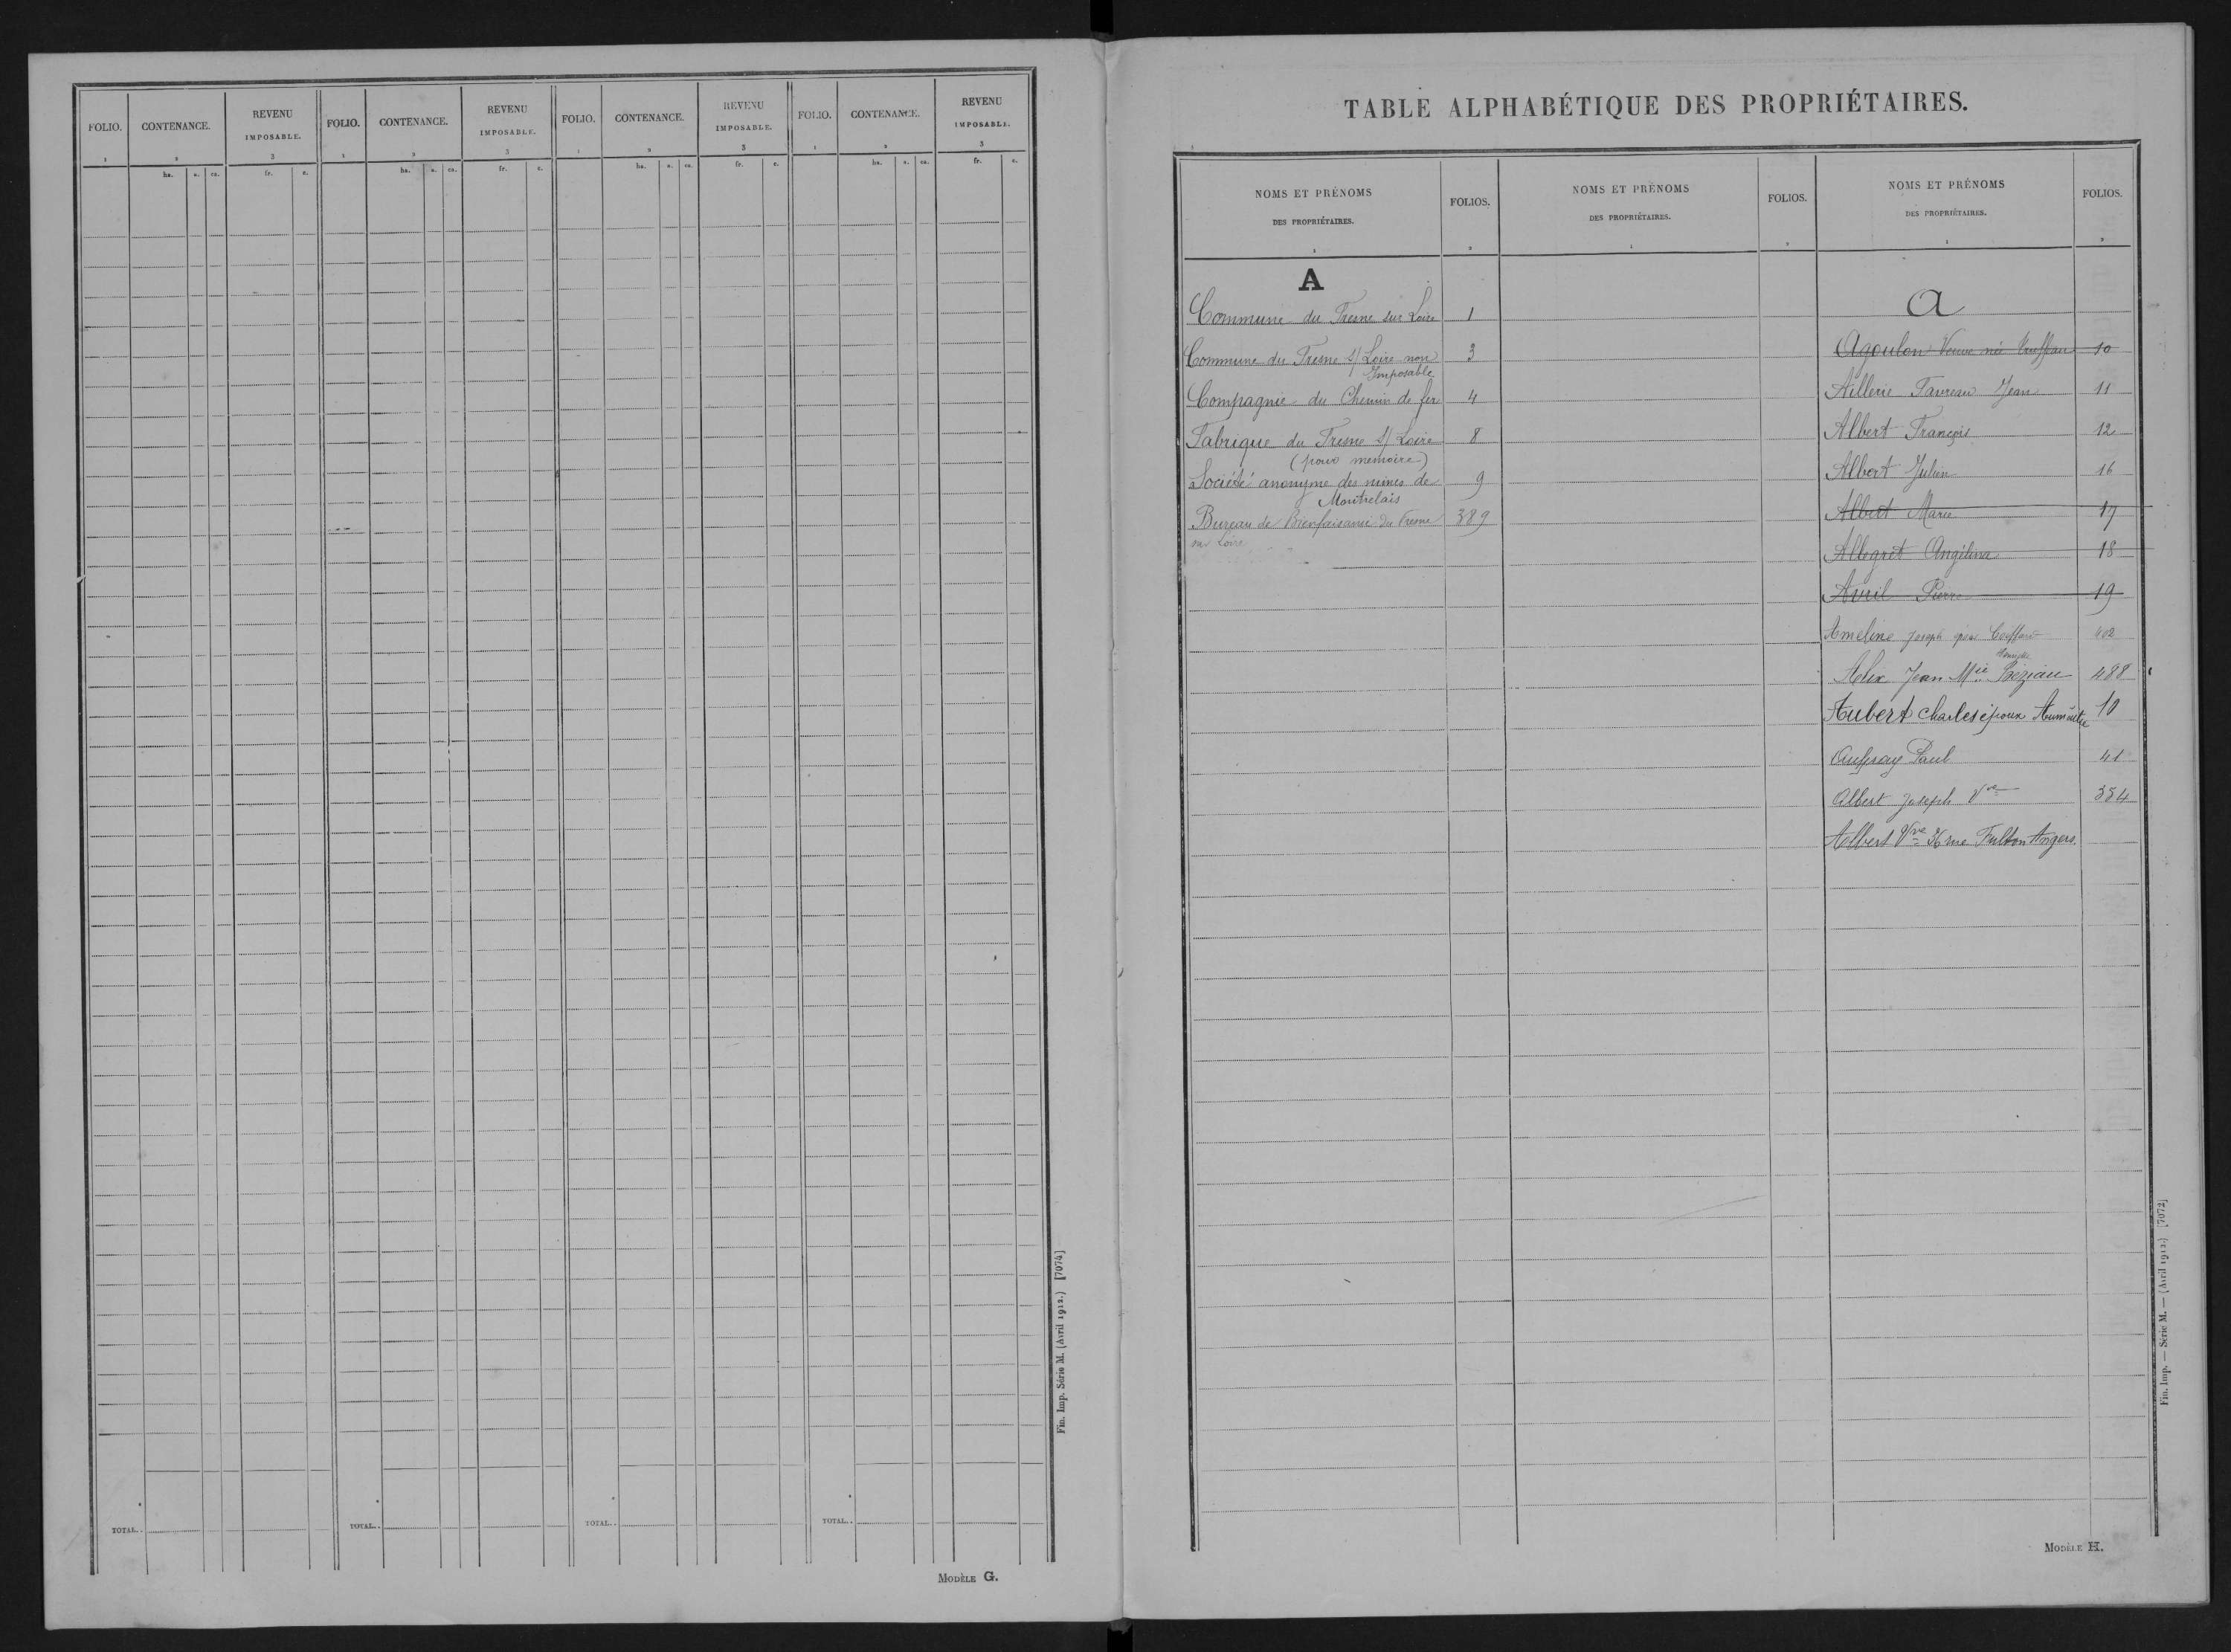 FOLIO. CONTENANCE. REVENU IMPOSABLE. FOLIO. CONTENANCE. REVENU IMPOSABLE. FOLIO. CONTENANCE. REVENU IMPOSABLE. FOLIO. CONTENANCE. REVENU IMPOSABLE.
1 2 3 1 2 3 1 2 3 1 2 3
ha. a. ca. fr. c. ha. a. ca. fr. c. ha. a. ca. fr. c. ha. a. ca. fr. c.
TOTAL.. TOTAL.. TOTAL.. TOTAL..
Fin. Imp. Série M. (Avril 1912.) [7074]
MODÈLE G.
TABLE ALPHABÉTIQUE DES PROPRIÉTAIRES.
NOMS ET PRÉNOMS DES PROPRIÉTAIRES. FOLIOS. NOMS ET PRÉNOMS DES PROPRIÉTAIRES. FOLIOS. NOMS ET PRÉNOMS DES PROPRIÉTAIRES. FOLIOS.
1 2 1 2 1 2
A
Commune du Fresne sur Loire 1
Commune du Fresne s/ Loire non 3
Imposable
Compagnie du Chemin de fer 4
Fabrique du Fresne s/ Loire 8
(pour memoire)
Société anonyme des mines de 9
Montrelais
Bureau de Bienfaisance du Fresne 389
sur Loire
A
Agoulon Veuve née 10
Aillerie Favreau Jean 11
Albert François 12
Albert Julien 16
Albert Marie 17
Allegret Angélina 18
Avril Pierre 19
Ameline Joseph époux Coiffard 402
Alix Jean Mie Béziau 488
Aubert Charles époux 10
Auffray Paul 41
Albert Joseph Vve 354
Albert Vve 36 rue Fulton Angers.
Fin. Imp. — Série M. — (Avril 1912.) [7072]
MODÈLE H.